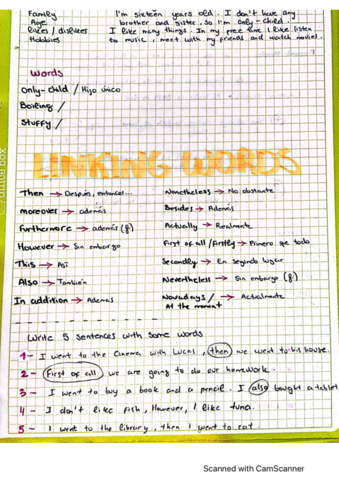 Family
Age
Likes / dislikes
Hobbies
I'm sixteen years old. I don't have any
brother and sister, so I'm only-child.
I like many things. In my free time I like listen
to music, meet with my friends and watch movies.
Words
Only-child / Hijo único
Boiling /
Stuffy /
LINKING WORDS
Then → Después, entonces...
moreover → además
Furthermore → además (f)
However → Sin embargo
This → Así
Also → También
In addition → Además
Nonetheless → No obstante
Besides → Además
Actually → Realmente
First of all / Firstly → Primero que todo
Secondly → En segundo lugar
Nevertheless → Sin embargo (f)
Nowadays / At the moment → Actualmente
Write 5 sentences with some words
1- I went to the cinema with Lucas, then we went to his house.
2- First of all, we are going to do our homework.
3- I went to buy a book and a pencil. I also bought a tablet
4- I don't like fish, However, I like tuna.
5- I went to the library, then I went to eat.
Scanned with CamScanner